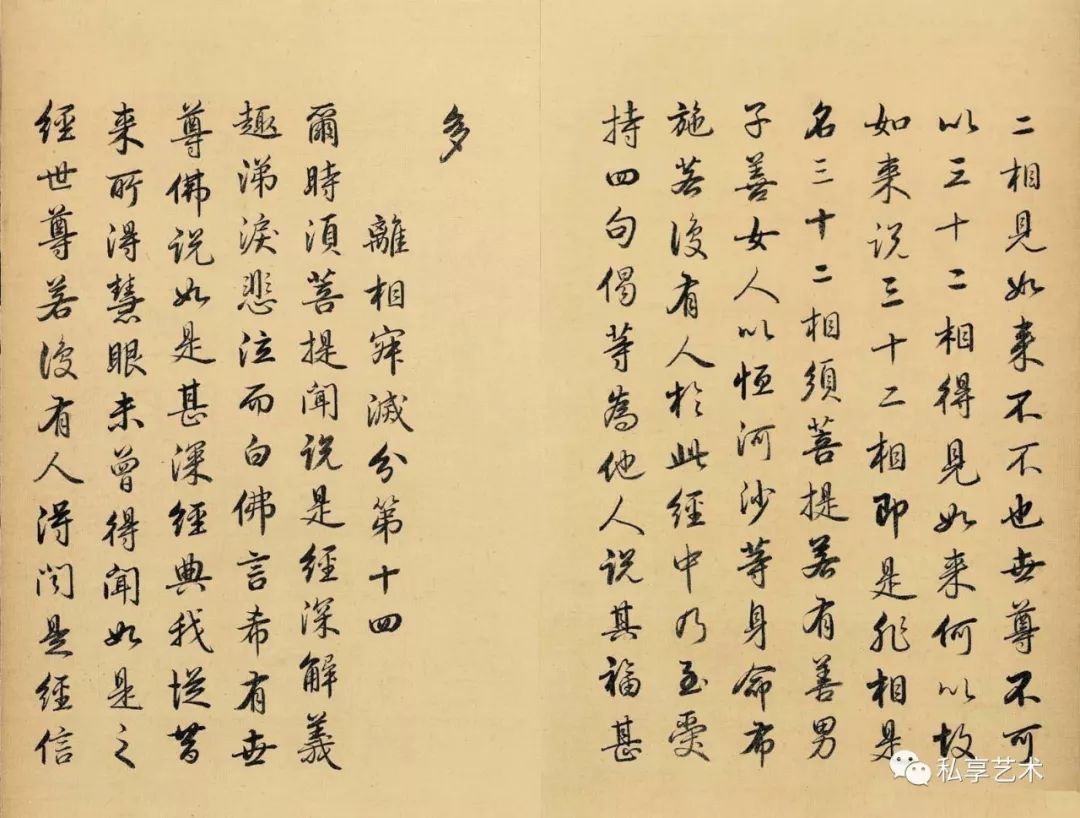 二相見如来不不也世尊不可
以三十二相得見如来何以故
如来说三十二相即是非相是
名三十二相須菩提若有善男
子善女人以恒河沙等身命布
施若復有人於此經中乃至受
持四句偈等為他人说其福甚
多
離相寂滅分第十四
爾時湏菩提聞说是經深解義
趣涕淚悲泣而白佛言希有世
尊佛说如是甚深經典我從昔
来所得慧眼未曾得聞如是之
經世尊若復有人得聞是經信
私享艺术